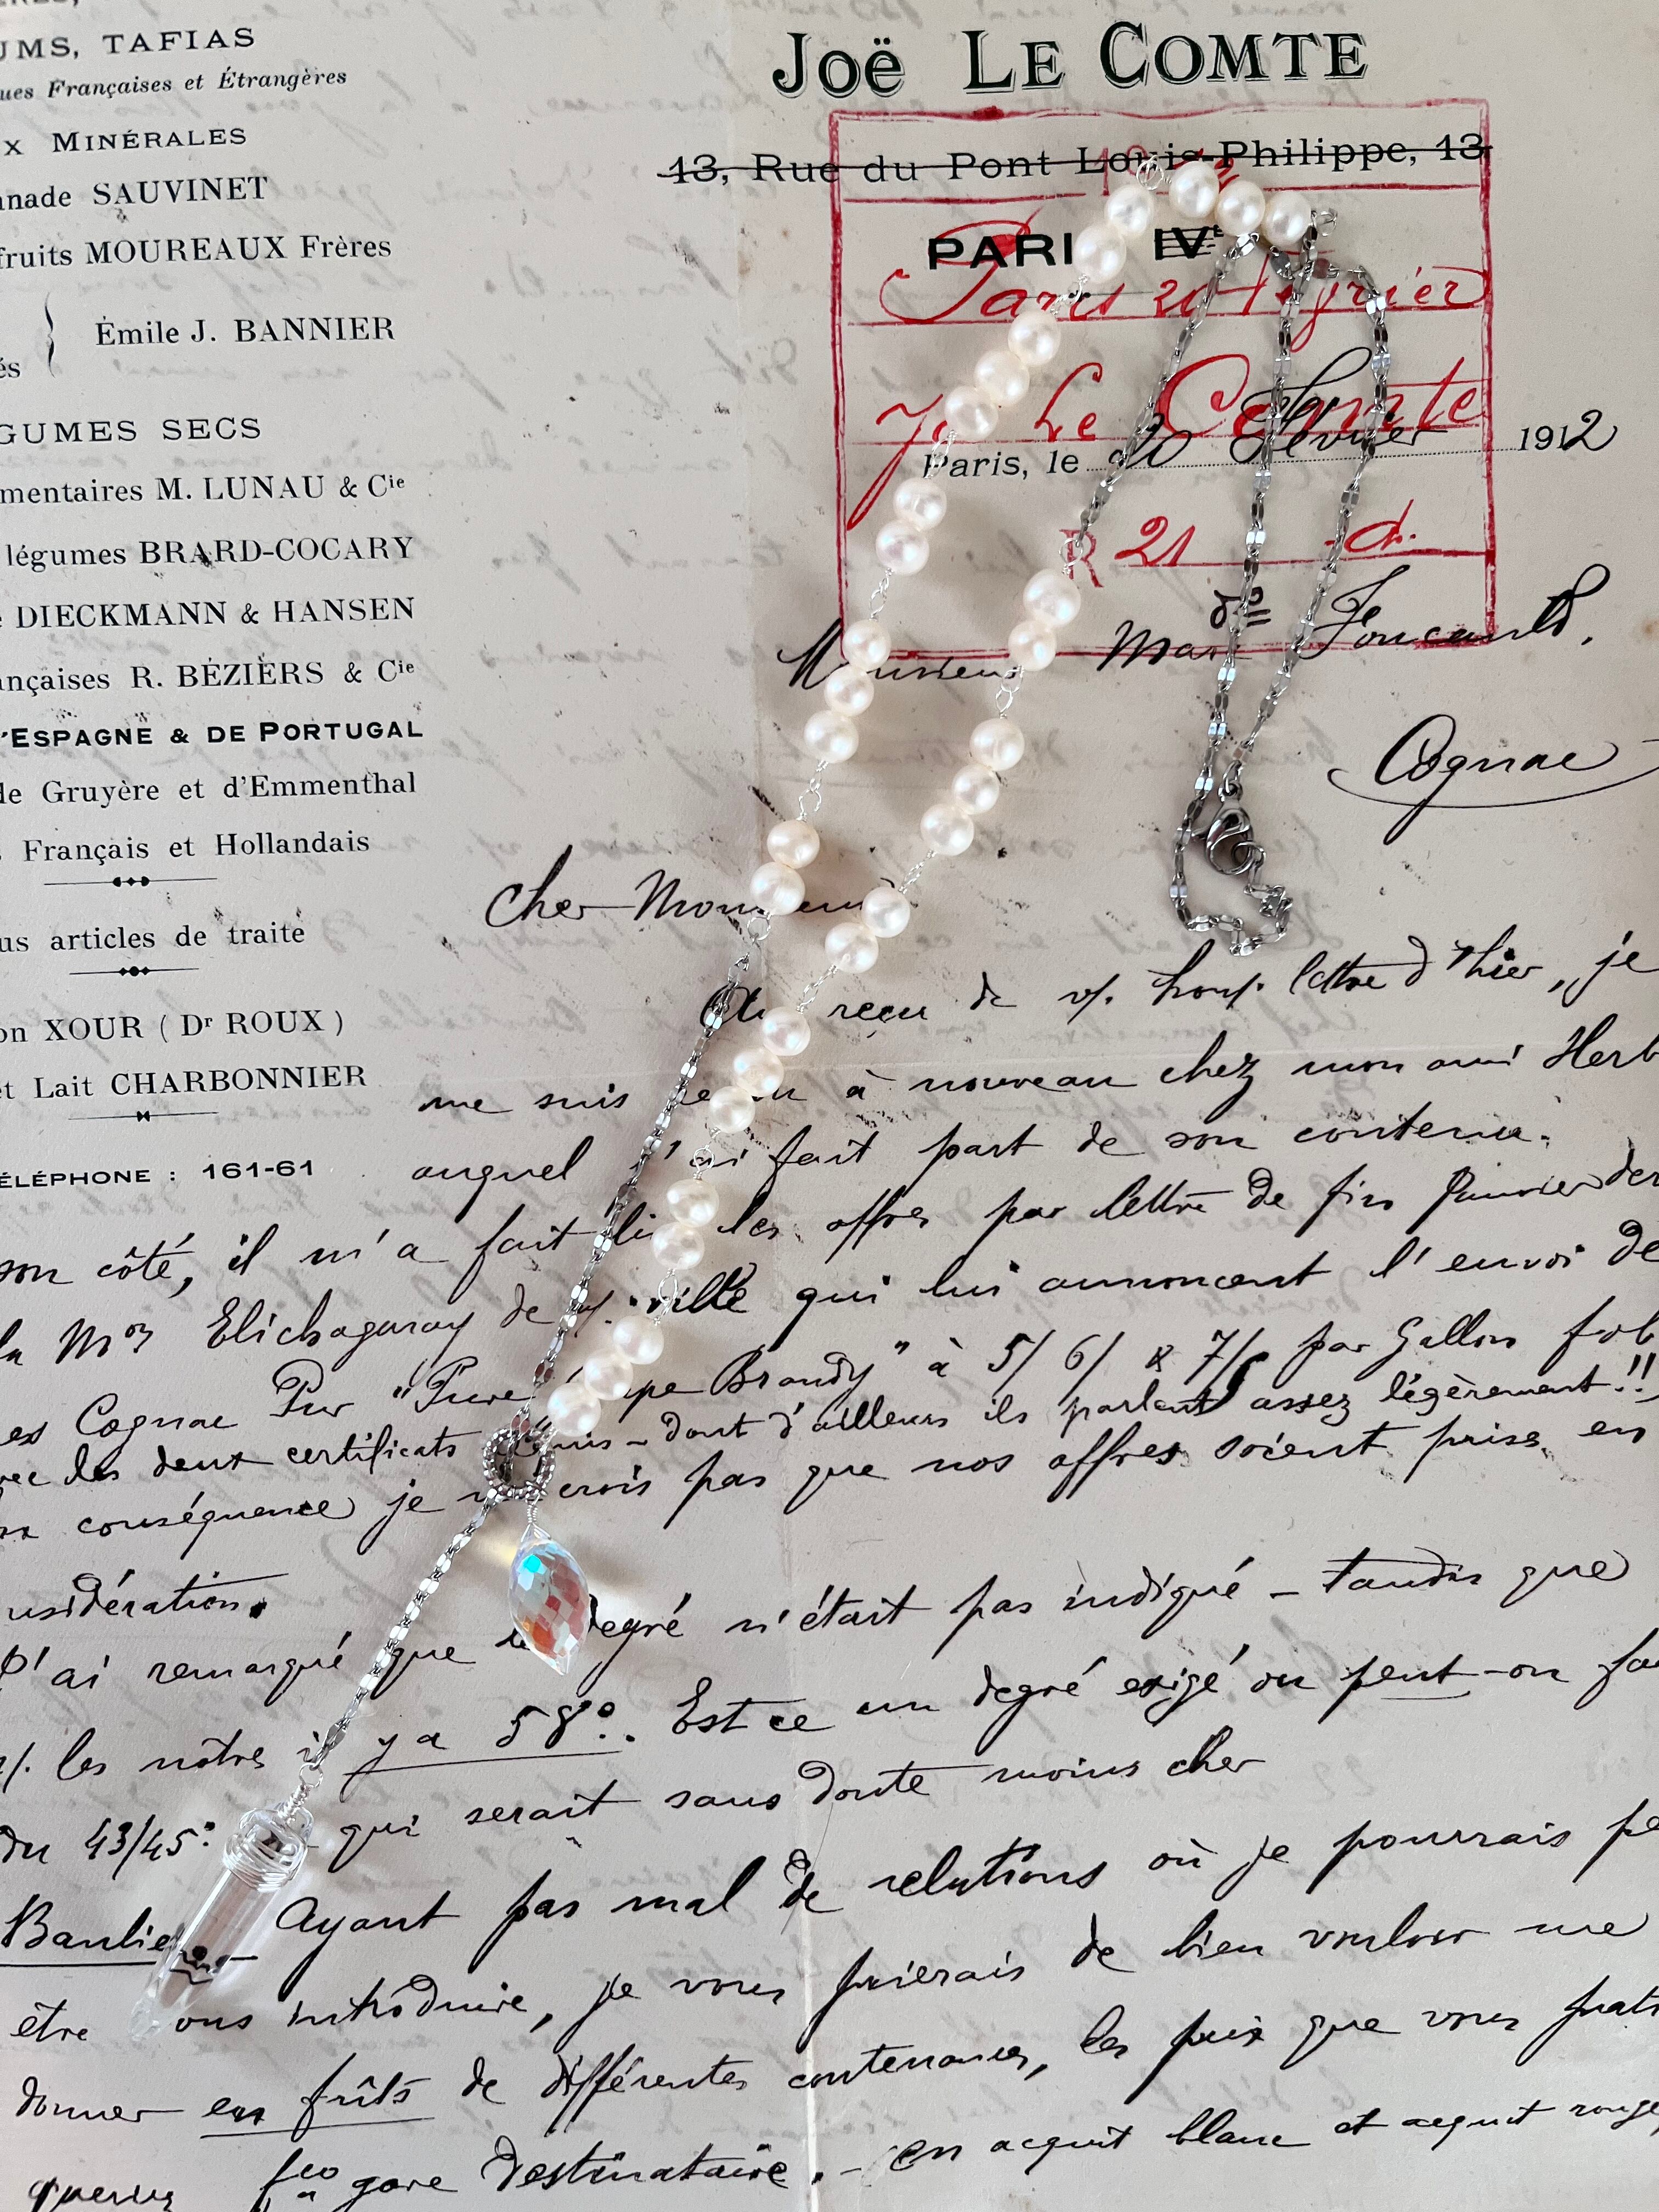 UMS, TAFIAS
ues Françaises et Étrangères
x MINÉRALES
nade SAUVINET
fruits MOUREAUX Frères
Émile J. BANNIER
és
GUMES SECS
mentaires M. LUNAU & Cie
légumes BRARD-COCARY
e DIECKMANN & HANSEN
nçaises R. BÉZIERS & Cie
'ESPAGNE & DE PORTUGAL
de Gruyère et d'Emmenthal
s Français et Hollandais
us articles de traite
on XOUR (Dr ROUX)
et Lait CHARBONNIER
ÉLÉPHONE : 161-61
Joë LE COMTE
13, Rue du Pont Louis-Philippe, 13
PARI IVe
Paris 20 février
Le Comte
Paris, le 20 février 1912
R 21 d.
Monsieur Foucauld,
Cognac
Cher Monsieur
reçu de v/. hon/. lettre d'hier, je
me suis à nouveau chez mon ami Herb
auquel j'ai fait part de son contenu.
son côté, il m'a fait les offres par lettre de fin Janvier der
la Mon Elichagaray de v/. ville qui lui annoncent l'envoi de
es Cognac Pur "Pure Brandy" à 5/ 6/ & 7/ par Gallon fob
vec les deux certificats dont d'ailleurs ils parlent assez légèrement!!
conséquence je crois pas que nos offres soient prises en
nsidération.
J'ai remarqué que degré n'était pas indiqué - tandis que
les nôtres il y a 58°. Est ce un degré exigé ou peut-on fa
du 43/45° qui serait sans doute moins cher
Banlieue Ayant pas mal de relations où je pourrais pe
être vous introduire, je vous prierais de bien vouloir me
donner en fûts de différentes contenances, les prix que vous prati
quering fco gare Destinataire. - en acquit blanc et acquit rouge,